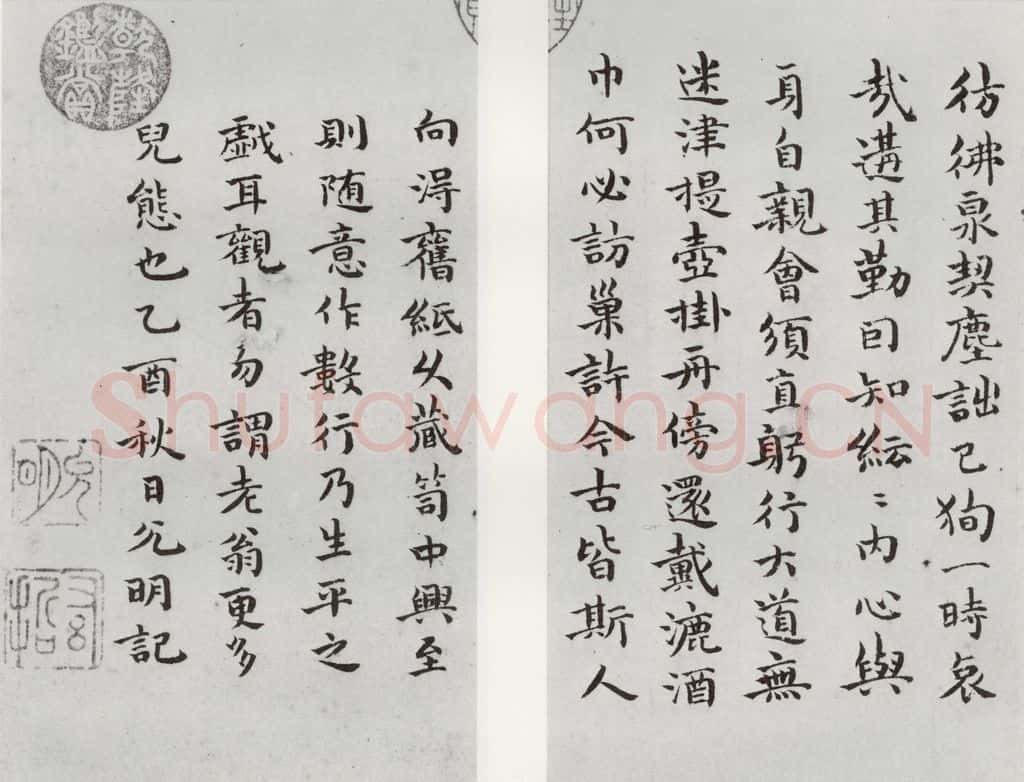 彷彿泉契塵詘已狥一時哀
哉遘其勤回知紜〻内心與
身自親會須直躬行大道無
迷津提壺掛舟傍還戴漉酒
巾何必訪巢許今古皆斯人
向淂舊紙久藏笥中興至
則随意作數行乃生平之
戯耳觀者勿謂老翁更多
兒態也乙酉秋日允明記
乾隆鑑賞
允明
Shufawang.CN